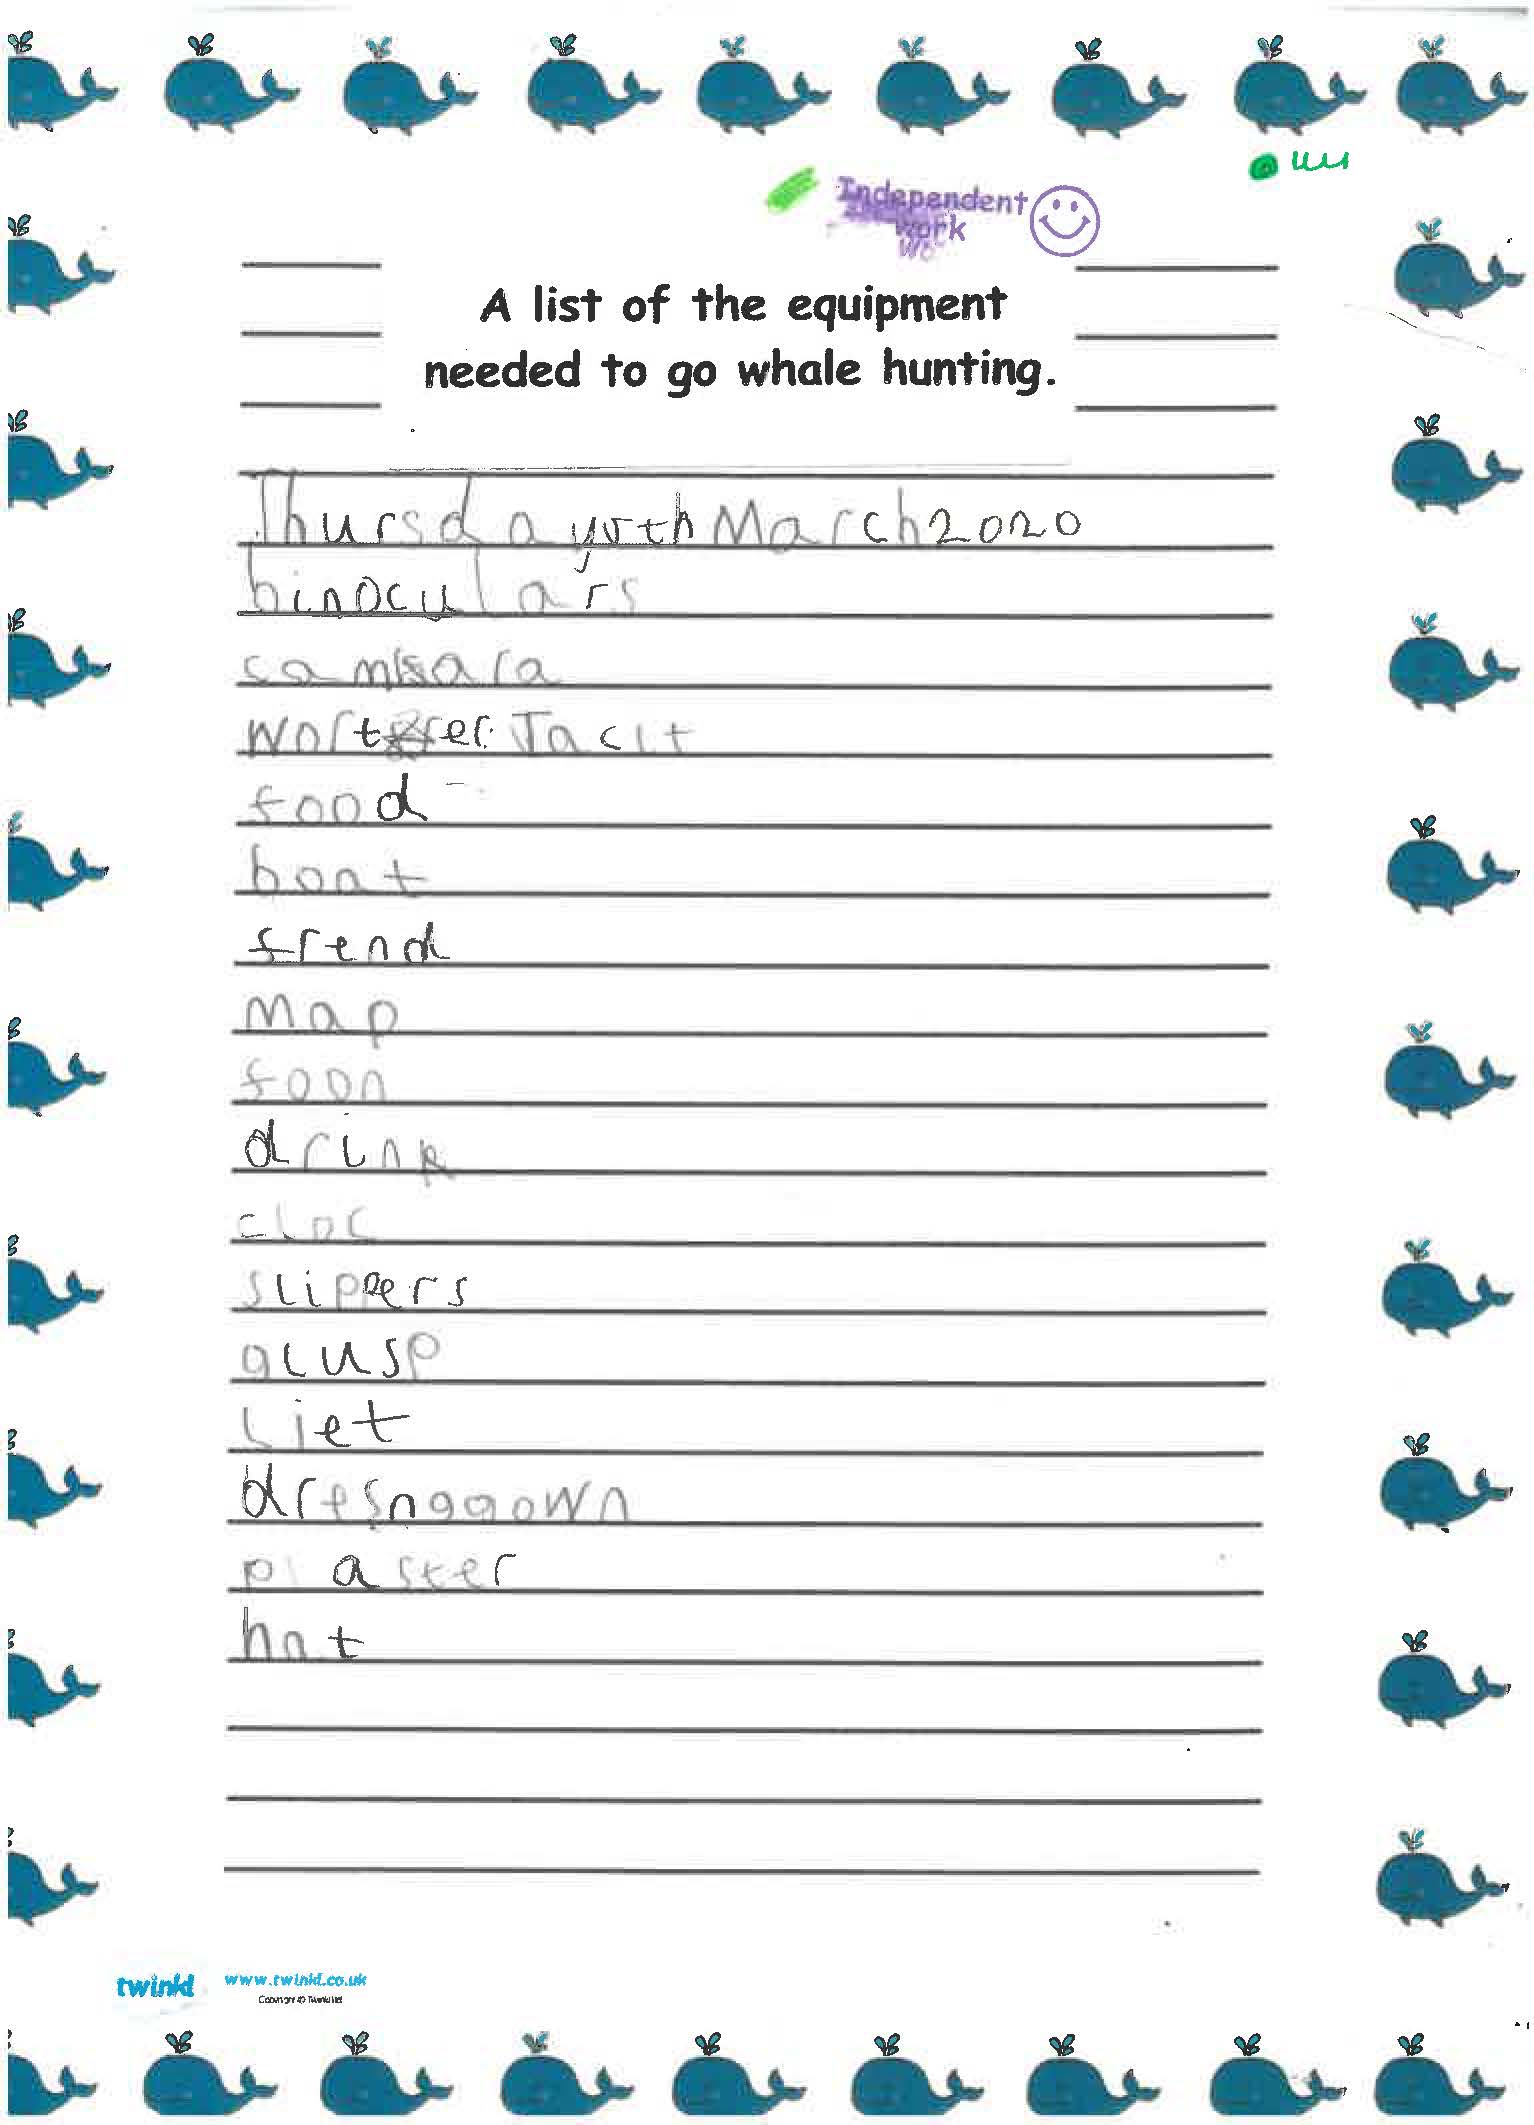 Independent
work
A list of the equipment
needed to go whale hunting.
Thursday 5th March 2020
binoculars
camsara
worter Jacit
food
boat
frend
Map
foon
drink
cloc
slippers
glusp
Liet
dresnggown
plaster
hat
twinkl www.twinkl.co.uk